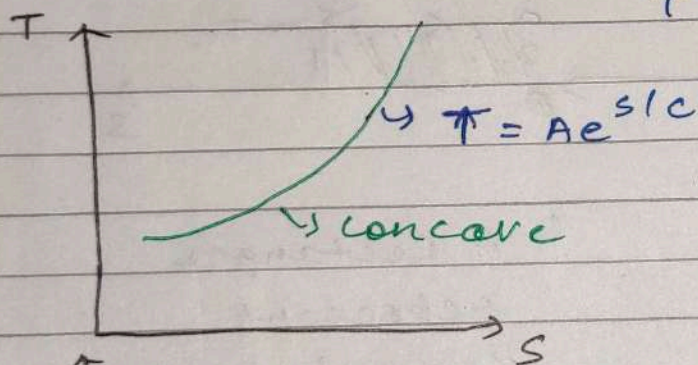 T
→ T = Ae^s/c
→ concave
S